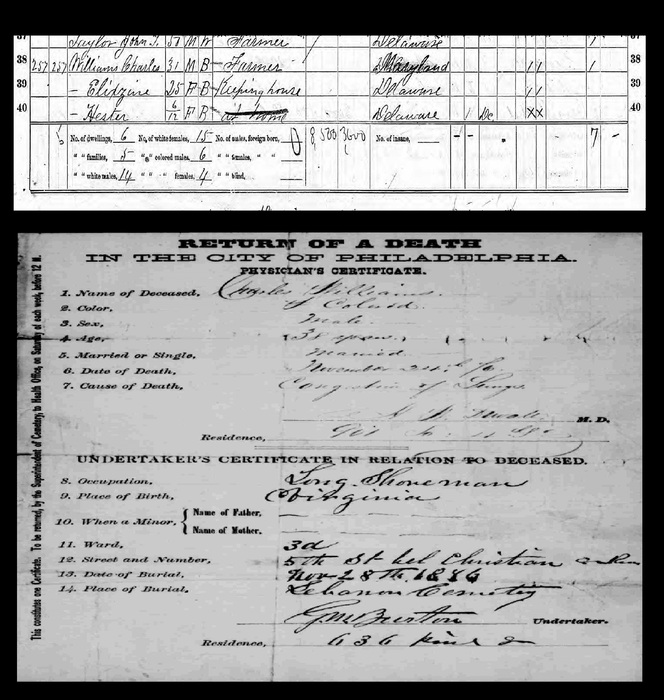 37
Taylor John T. 51 M W Farmer 1 Delaware 1
38 257 257 Williams Charles 31 M B Farmer Maryland 1 1 1 38
39 – Elidzine 25 F B Keeping house Delaware 1 1 39
40 – Hester 6/12 F B at home Delaware 1 Dc. X X 40
No. of dwellings, 6 No. of white females, 15 No. of males, foreign born, 0 8,500 3600 No. of insane, — 7
" " families, 5 " " colored males, 6 " " females,
" " white males, 14 " " " females, 4 " " blind,
RETURN OF A DEATH
IN THE CITY OF PHILADELPHIA.
PHYSICIAN'S CERTIFICATE.
1. Name of Deceased, Charles Williams
2. Color, Colored
3. Sex, Male
4. Age, 38 years
5. Married or Single, Married
6. Date of Death, November
7. Cause of Death, Congestion of Lungs
M. D.
Residence,
UNDERTAKER'S CERTIFICATE IN RELATION TO DECEASED.
8. Occupation, Long Shoreman
9. Place of Birth, Virginia
10. When a Minor, { Name of Father, —
Name of Mother, —
11. Ward, 3d
12. Street and Number, 5th St bel Christian
13. Date of Burial, Nov 28th
14. Place of Burial, Lebanon Cemetry
Burton Undertaker.
Residence, 636
This constitutes one Certificate. To be returned, by the Superintendent of Cemetery, to Health Office, on Saturday of each week, before 12 M.